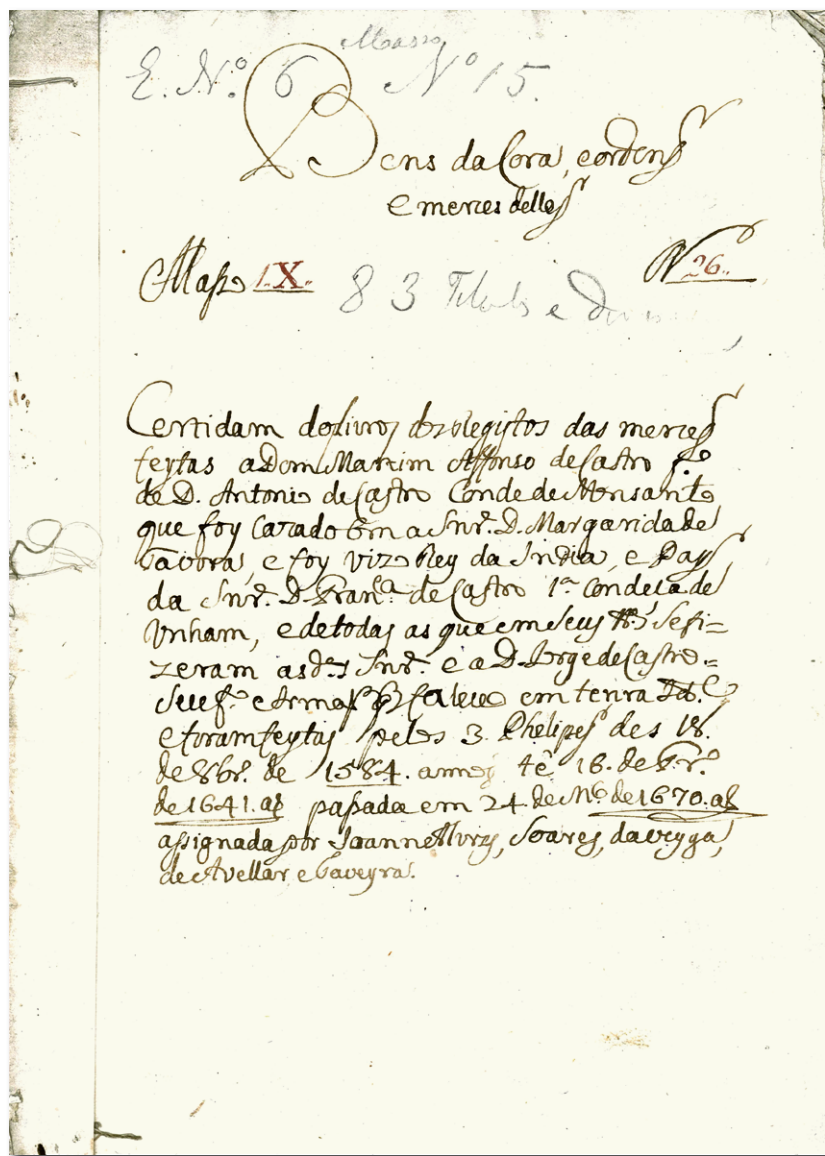 E. N.º 6 Masso N.º 15.
Bens da Coroa, e ordens
e merces delles
Masso IX. N 26.
83 Titulos e
Certidam dos livros dos Registos das merces
feytas a Dom Martim Affonso de Castro f.º
de D. Antonio de Castro Conde de Monsanto
que foy Cazado com a Snr.ª D. Margarida de
Tavora, e foy Vizo Rey da India, e Pay
da Snr.ª D. Fran.ca de Castro 1.ª Condeça de
Unham, e de todas as que em seus se fi=
zeram as d.as Snr.as e a D. Jorge de Castro =
seu f.º e Irmaõ
e foram feytas pelos 3 Phelipes des 18.
de 8br.º de 1584. annos té 16. de Fr.º
de 1641. as passada em 24. de M.ço de 1670. as
assignada por Joanne Alvrz, Soares, da veyga,
de Avellar e Taveyra.